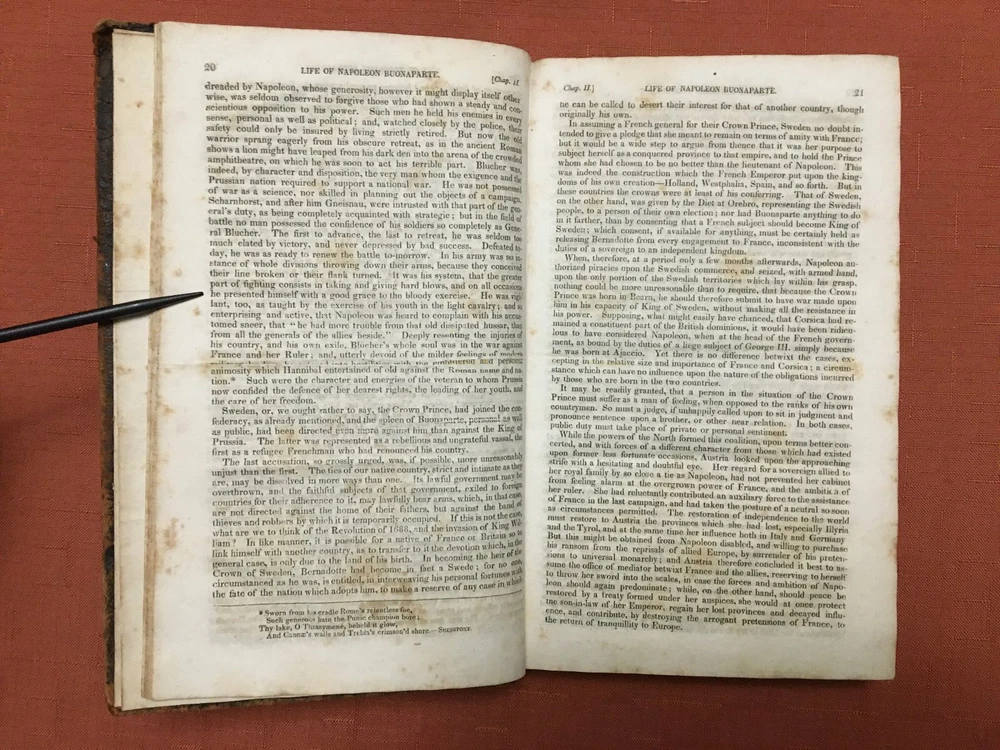 20
LIFE OF NAPOLEON BUONAPARTE.
[Chap. II.
dreaded by Napoleon, whose generosity, however it might display itself other-
wise, was seldom observed to forgive those who had shown a steady and con-
scientious opposition to his power. Such men he held his enemies in every
sense, personal as well as political; and, watched closely by the police, their
safety could only be insured by living strictly retired. But now the old
warrior sprang eagerly from his obscure retreat, as in the ancient Roman
shows a lion might have leaped from his dark den into the arena of the crowded
amphitheatre, on which he was soon to act his terrible part. Blucher was,
indeed, by character and disposition, the very man whom the exigence and the
Prussian nation required to support a national war. He was not possessed
of war as a science, nor skilled in planning out the objects of a campaign.
Scharnhorst, and after him Gneisnau, were intrusted with that part of the gen-
eral's duty, as being completely acquainted with strategie; but in the field of
battle no man possessed the confidence of his soldiers so completely as Gene-
ral Blucher. The first to advance, the last to retreat, he was seldom too
much elated by victory, and never depressed by bad success. Defeated to-
day, he was as ready to renew the battle to-morrow. In his army was no in-
stance of whole divisions throwing down their arms, because they conceived
their line broken or their flank turned. It was his system, that the greater
part of fighting consists in taking and giving hard blows, and on all occasions
he presented himself with a good grace to the bloody exercise. He was vigi-
lant, too, as taught by the exercise of his youth in the light cavalry; and so
enterprising and active, that Napoleon was heard to complain with his accus-
tomed sneer, that "he had more trouble from that old dissipated hussar, than
from all the generals of the allies beside." Deeply resenting the injuries of
his country, and his own exile, Blucher's whole soul was in the war against
France and her Ruler; and, utterly devoid of the milder feelings of modern
and personal
animosity which Hannibal entertained of old against the Roman name and na-
tion.* Such were the character and energies of the veteran to whom Prussia
now confided the defence of her dearest rights, the leading of her youth, and
the care of her freedom.
Sweden, or, we ought rather to say, the Crown Prince, had joined the con-
federacy, as already mentioned, and the spleen of Buonaparte, personal as well
as public, had been directed even more against him than against the King of
Prussia. The latter was represented as a rebellious and ungrateful vassal, the
first as a refugee Frenchman who had renounced his country.
The last accusation, so grossly urged, was, if possible, more unreasonably
unjust than the first. The ties of our native country, strict and intimate as they
are, may be dissolved in more ways than one. Its lawful government may be
overthrown, and the faithful subjects of that government, exiled to foreign
countries for their adherence to it, may lawfully bear arms, which, in that case,
are not directed against the home of their fathers, but against the band of
thieves and robbers by which it is temporarily occupied. If this is not the case,
what are we to think of the Revolution of 1688, and the invasion of King Wil-
liam? In like manner, it is possible for a native of France or Britain so to
link himself with another country, as to transfer to it the devotion which, in the
general case, is only due to the land of his birth. In becoming the heir of the
Crown of Sweden, Bernadotte had become in fact a Swede; for no one,
circumstanced as he was, is entitled, in interweaving his personal fortunes with
the fate of the nation which adopts him, to make a reserve of any case in which
* Sworn from his cradle Rome's relentless foe,
Such generous hate the Punic champion bore;
Thy lake, O Thrasymene, beheld it glow,
And Cannæ's walls and Trebia's crimson'd shore.— SHENSTONE.
Chap. II.]
LIFE OF NAPOLEON BUONAPARTE.
21
ne can be called to desert their interest for that of another country, though
originally his own.
In assuming a French general for their Crown Prince, Sweden no doubt in-
tended to give a pledge that she meant to remain on terms of amity with France;
but it would be a wide step to argue from thence that it was her purpose to
subject herself as a conquered province to that empire, and to hold the Prince
whom she had chosen to be no better than the lieutenant of Napoleon. This
was indeed the construction which the French Emperor put upon the king-
doms of his own creation—Holland, Westphalia, Spain, and so forth. But in
these countries the crowns were at least of his conferring. That of Sweden,
on the other hand, was given by the Diet at Orebro, representing the Swedish
people, to a person of their own election; nor had Buonaparte anything to do
in it farther, than by consenting that a French subject should become King of
Sweden; which consent, if available for anything, must be certainly held as
releasing Bernadotte from every engagement to France, inconsistent with the
duties of a sovereign to an independent kingdom.
When, therefore, at a period only a few months afterwards, Napoleon au-
thorized piracies upon the Swedish commerce, and seized, with armed hand,
upon the only portion of the Swedish territories which lay within his grasp,
nothing could be more unreasonable than to require, that because the Crown
Prince was born in Bearn, he should therefore submit to have war made upon
him in his capacity of King of Sweden, without making all the resistance in
his power. Supposing, what might easily have chanced, that Corsica had re-
mained a constituent part of the British dominions, it would have been ridicu-
lous to have considered Napoleon, when at the head of the French govern-
ment, as bound by the duties of a liege subject of George III. simply because
he was born at Ajaccio. Yet there is no difference betwixt the cases, ex-
cepting in the relative size and importance of France and Corsica; a circum-
stance which can have no influence upon the nature of the obligations incurred
by those who are born in the two countries.
It may be readily granted, that a person in the situation of the Crown
Prince must suffer as a man of feeling, when opposed to the ranks of his own
countrymen. So must a judge, if unhappily called upon to sit in judgment and
pronounce sentence upon a brother, or other near relation. In both cases,
public duty must take place of private or personal sentiment.
While the powers of the North formed this coalition, upon terms better con-
certed, and with forces of a different character from those which had existed
upon former less fortunate occasions, Austria looked upon the approaching
strife with a hesitating and doubtful eye. Her regard for a sovereign allied to
her royal family by so close a tie as Napoleon, had not prevented her cabinet
from feeling alarm at the overgrown power of France, and the ambition of
her ruler. She had reluctantly contributed an auxiliary force to the assistance
of France in the last campaign, and had taken the posture of a neutral so soon
as circumstances permitted. The restoration of independence to the world
must restore to Austria the provinces which she had lost, especially Illyria
and the Tyrol, and at the same time her influence both in Italy and Germany
But this might be obtained from Napoleon disabled, and willing to purchase
his ransom from the reprisals of allied Europe, by surrender of his preten-
sions to universal monarchy; and Austria therefore concluded it best to as-
sume the office of mediator betwixt France and the allies, reserving to herself
to throw her sword into the scales, in case the forces and ambition of Napo-
leon should again predominate; while, on the other hand, should peace be
restored by a treaty formed under her auspices, she would at once protect
the son-in-law of her Emperor, regain her lost provinces and decayed influ-
ence, and contribute, by destroying the arrogant pretensions of France, to
the return of tranquillity to Europe.